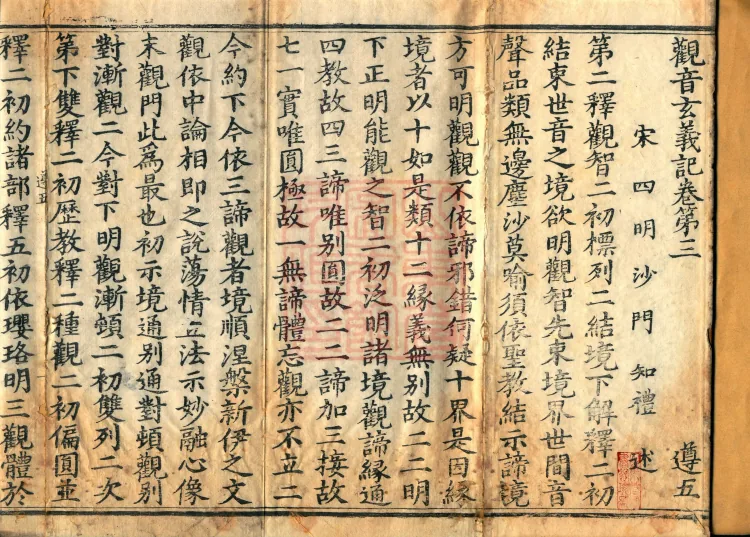 觀音玄義記卷第三 遵五
宋四明沙門知禮述
第二釋觀智二初標列二結境下解釋二初
結束世音之境欲明觀智先束境界世間音
聲品類無邊塵沙莫喻須依聖教結示諦境
方可明觀觀不依諦邪錯何疑十界是因緣
境者以十如是類十二緣義無別故二二明
下正明能觀之智二初泛明諸境觀諦緣通
四教故四三諦唯別圓故二二諦加三接故
七一實唯圓極故一無諦體忘觀亦不立二
今約下今依三諦觀者境順涅槃新伊之文
觀依中論相即之說蕩情立法示妙融心像
末觀門此爲最也初示境通別通對頓觀別
對漸觀二今對下明觀漸頓二初雙列二次
第下雙釋二初歷教釋二種觀二初偏圓並
遵五
釋二初約諸部釋五初依瓔珞明三觀體於